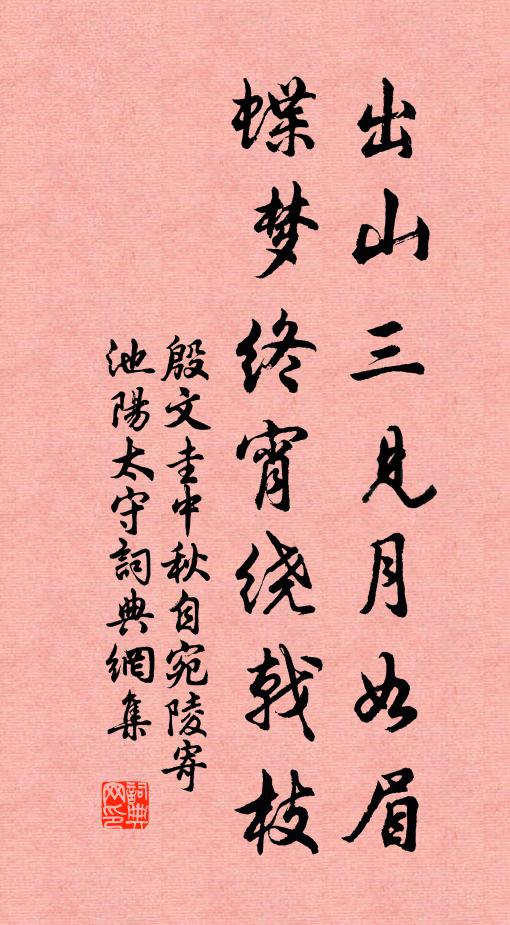 出山三见月如眉
蝶梦终宵绕戟枝
殷文圭中秋自宛陵寄
池陽太守詞典網集
詞典網印